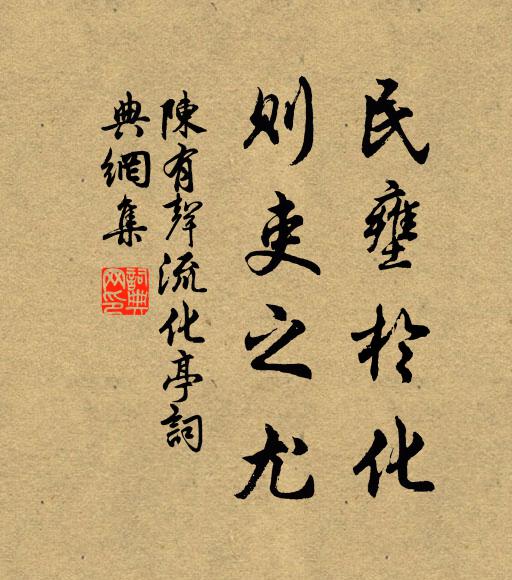 民壅於化
則吏之尤
陳有聲流化亭詞
典網集
詞典網印